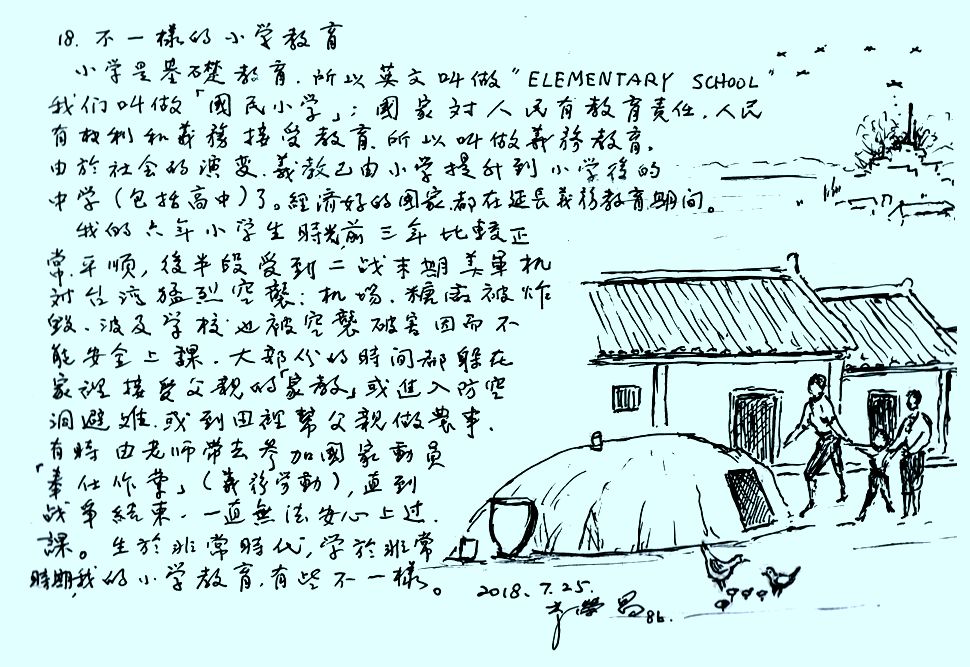 18. 不一樣的小学教育
小学是基礎教育.所以英文叫做"ELEMENTARY SCHOOL"
我们叫做「國民小学」;國家対人民有教育責任.人民
有权利和義務接受教育.所以叫做義務教育.
由於社会的演变.義教已由小学提升到小学後的
中学(包括高中)了。經済好的国家.都在延長義務教育期间。
我的六年小学生時光,前三年比較正
常.平顺,後半段受到二战末期美軍机
対台湾猛烈空襲:机場.糖廠被炸
毀.波及学校也被空襲破害因而不
能安全上課.大部份的時间都躲在
家裡接受父親的「家教」或進入防空
洞避难.或到田裡幫父親做農事.
有時由老师带去参加國家動員
「奉仕作業」(義務劳動),直到
战争結束.一直無法安心上过.
課。生於非常時代,学於非常
時期,我的小学教育.有些不一樣。
2018.7.25.
86.